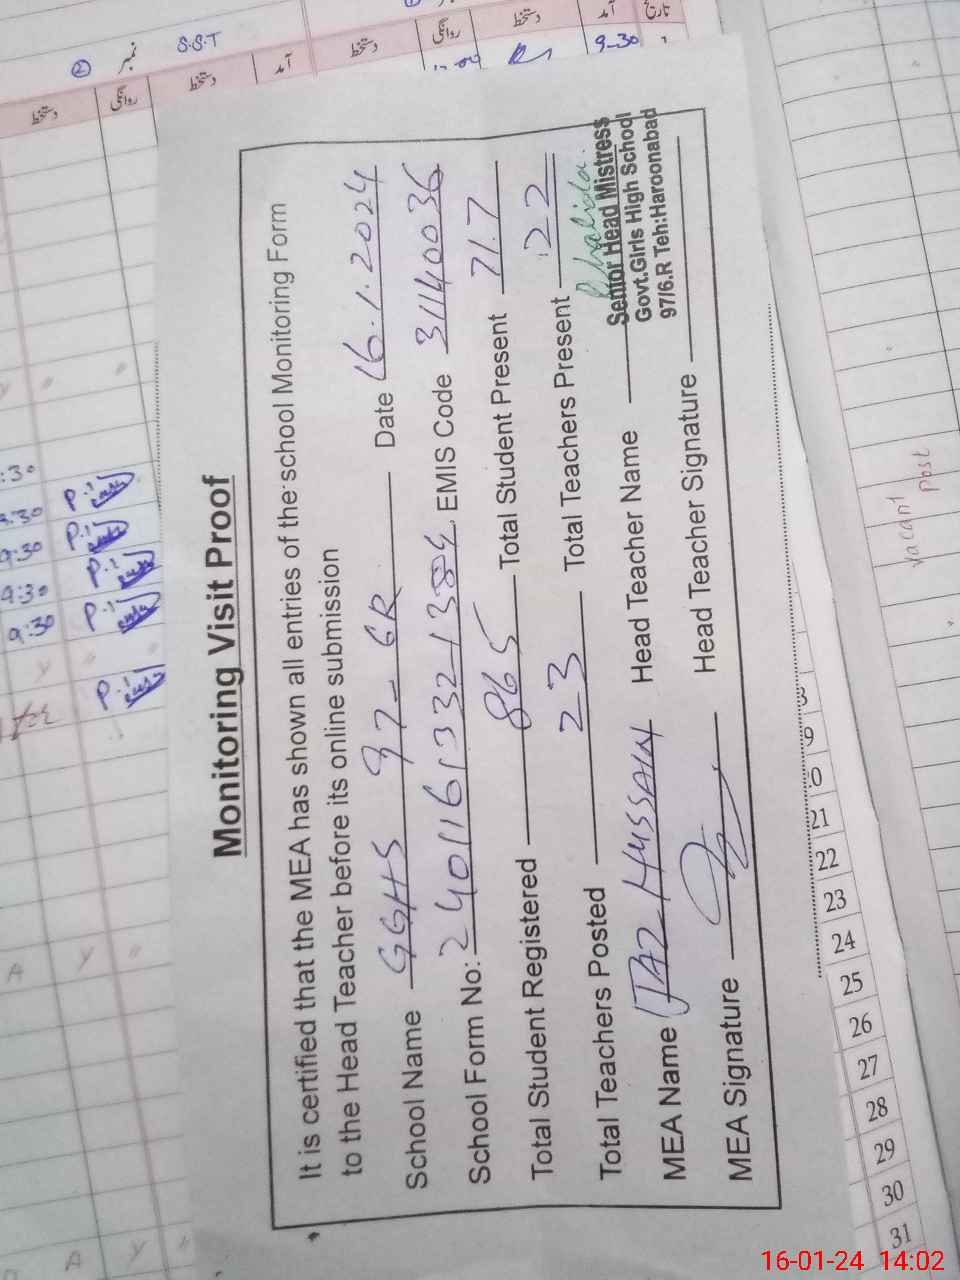 Monitoring Visit Proof
It is certified that the MEA has shown all entries of the school Monitoring Form
to the Head Teacher before its online submission
School Name GGHS 97-6R Date 16.1.2024
School Form No: EMIS Code 31140036
Total Student Registered 865 Total Student Present 717
Total Teachers Posted 23 Total Teachers Present 22
MEA Name HUSSAIN Head Teacher Name
MEA Signature Head Teacher Signature
Khalida
Senior Head Mistress
Govt.Girls High School
97/6.R Teh:Haroonabad
② نمبر S.S.T
دستخط روانگی دستخط آمد دستخط روانگی دستخط آمد تاریخ
9-30
9:30
9:30
9:30
vacant
post
19
20
21
22
23
24
25
26
27
28
29
30
31
16-01-24 14:02